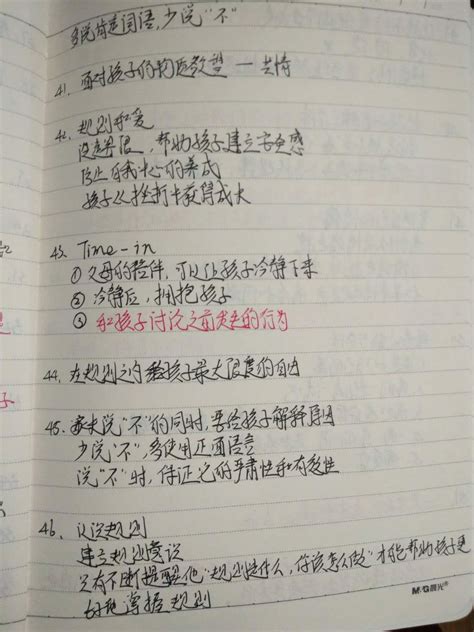 多说肯定词语，少说"不"
41、面对孩子的物质欲望 — 共情
42、规则和爱
设立界限，帮助孩子建立安全感
防止自我中心的养成
孩子从挫折中获得成长
43、Time-in
① 父母的陪伴，可以让孩子冷静下来
② 冷静后，拥抱孩子
③ 和孩子讨论之前发生的行为
44、在规则之内给孩子最大限度的自由
45、家长说"不"的同时，要给孩子解释原因
少说"不"，多使用正面语言
说"不"时，保证它的严肃性和有效性
46、认识规则
建立规则意识
只有不断提醒他"规则是什么，你该怎么做"才能帮助孩子更
好地掌握规则
M&G晨光